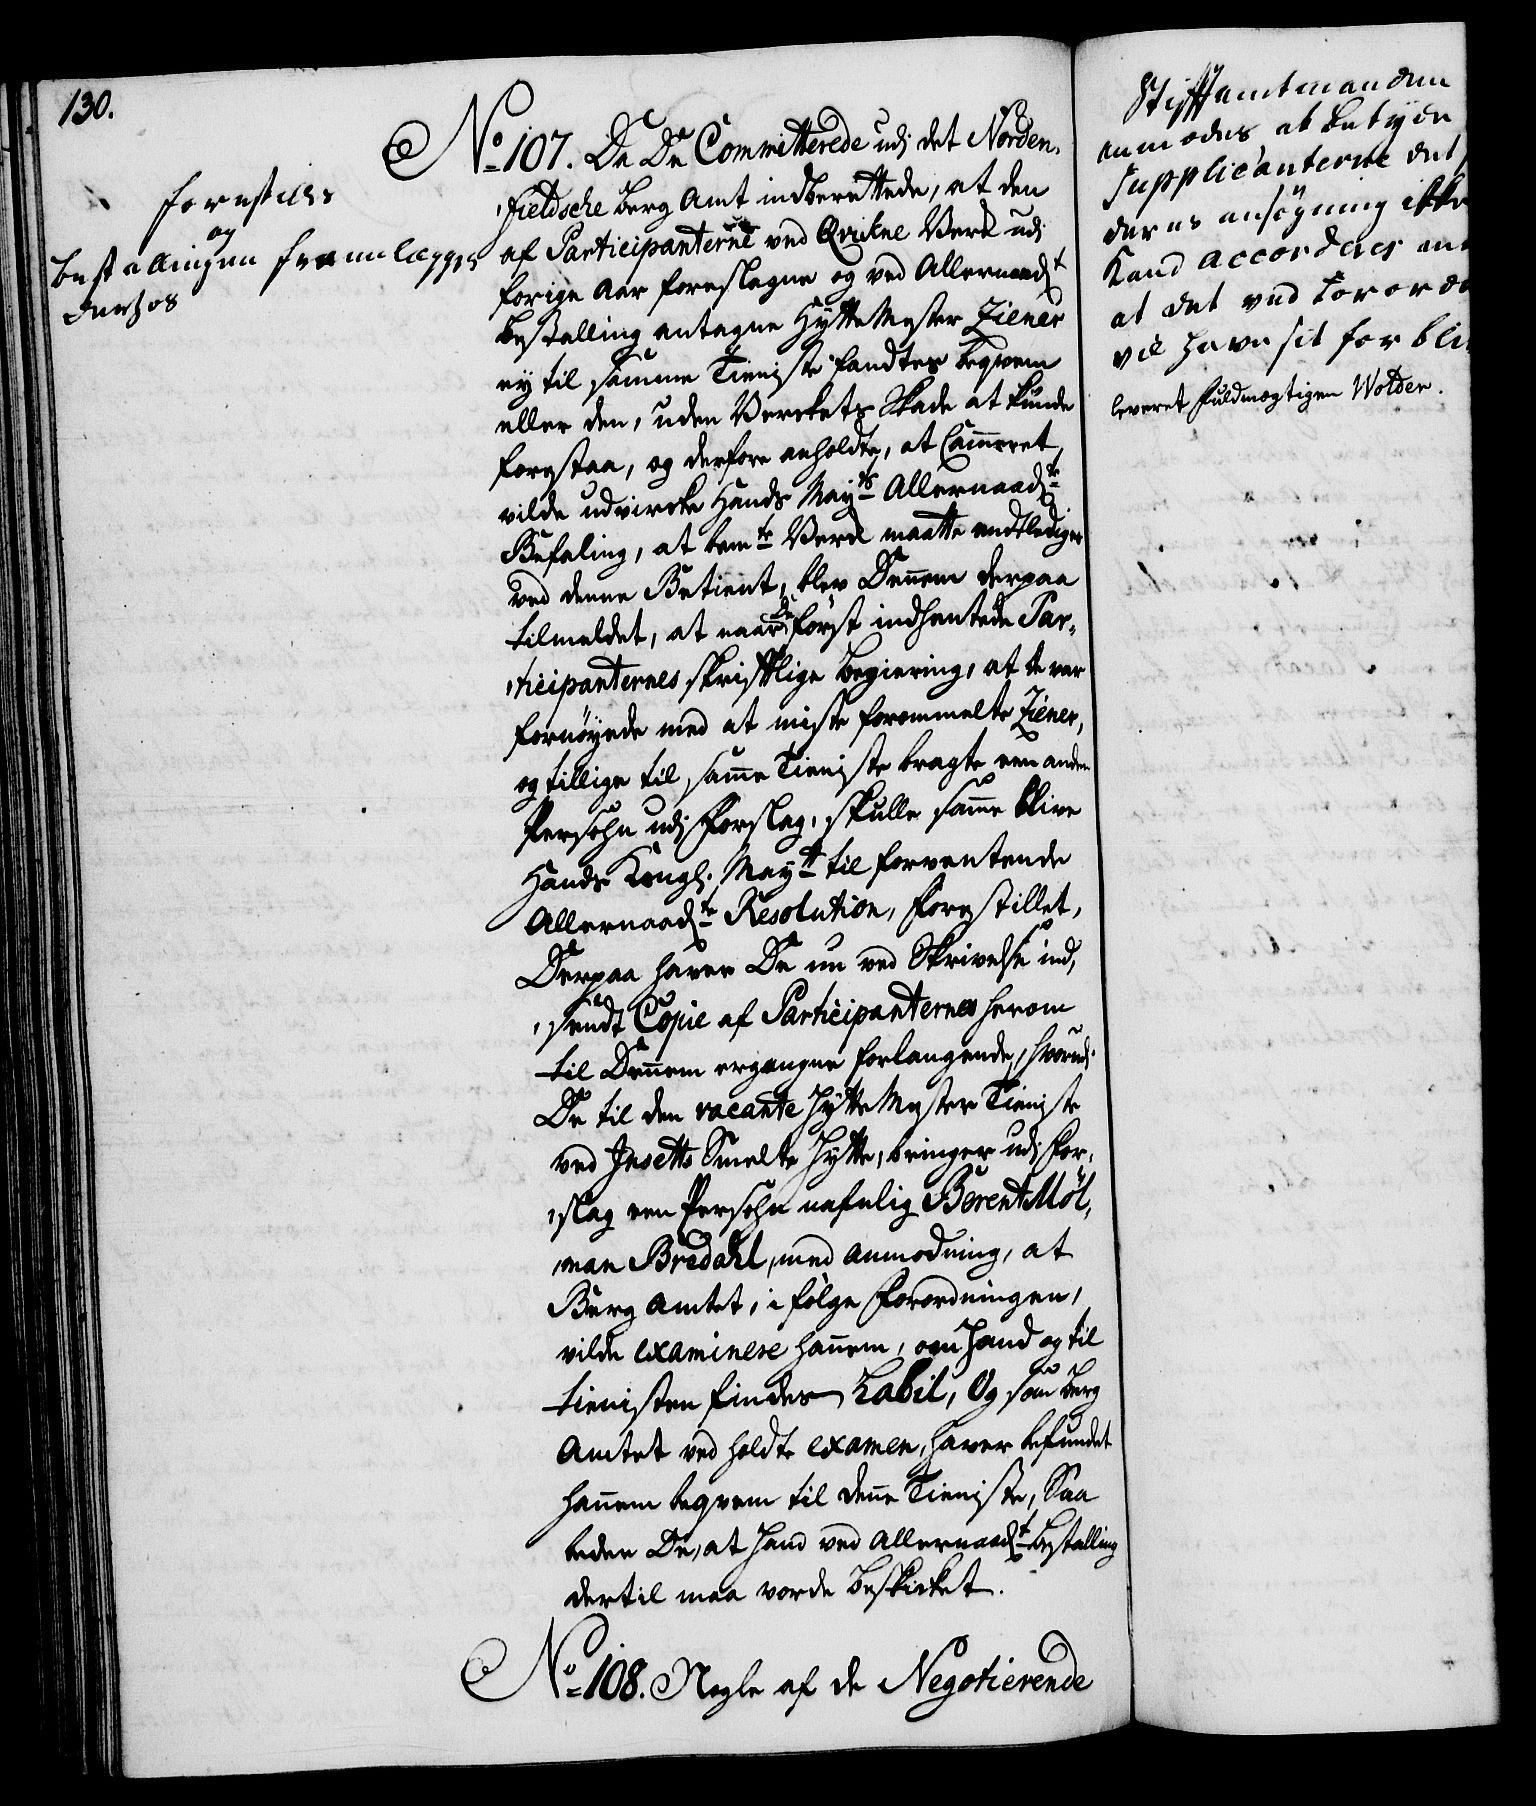 130.
forestilles
og
bestallingen fremlægges
derhos
No 107. De De Committerede udj det Norden-
fieldsche Berg Amt indberettede, at den
af Participanterne ved Qvikne Verk udj
forige Aar foreslagne og ved Allernaadt
Bestalling antagne Hytte Mester Ziener
ey til samme Tieniste fandtes beqvem
eller den, uden Verckets Skade at kunde
forestaa, og derfore anholdte, at Cammeret
vilde udvircke Hands Mayts Allernaadte
Befaling, at bemte Verck maatte endtlediges
ved denne Betient, blev Dennem derpaa
tilmeldet, at naar De først indhentede Par-
ticipanternes skriftlige Begiering, at de var
fornøyede med at miste forommelte Ziener,
og tillige til samme Tieniste bragte een anden
Persohn udj Forslag, skulle samme blive
Hands Kongl. Mayt til forventende
Allernaadte Resolution, forestillet,
Derpaa haver De nu ved Skrivelse ind-
sendt Copie af Participanternes herom
til Dennem ergangne forlangende, hvorudj
De til den vacante Hytte Mester Tieniste
ved Insetts Smelte Hytte, bringer udj For-
slag een Persohn nafnlig Berent Møl-
man Bredahl, med Anmodning, at
Berg Amtet, i følge Forordningen,
vilde examinere hannem, om Hand og til
tienisten findes habil, Og som Berg
Amtet ved holdte examen, haver befundet
hannem beqvem til denne Tieniste, Saa
beder De, at Hand ved Allernaadt Bestalling
dertil maa vorde beskicket.
No 108. Nogle af de Negotierende
Stiftamtmanden
anmodes at betyde
Supplicanterne det
deres ansøgning ikke
Kand accorderes
at det ved Forord
vil have sit for bli
leveret fuldmægtigen Wolder.